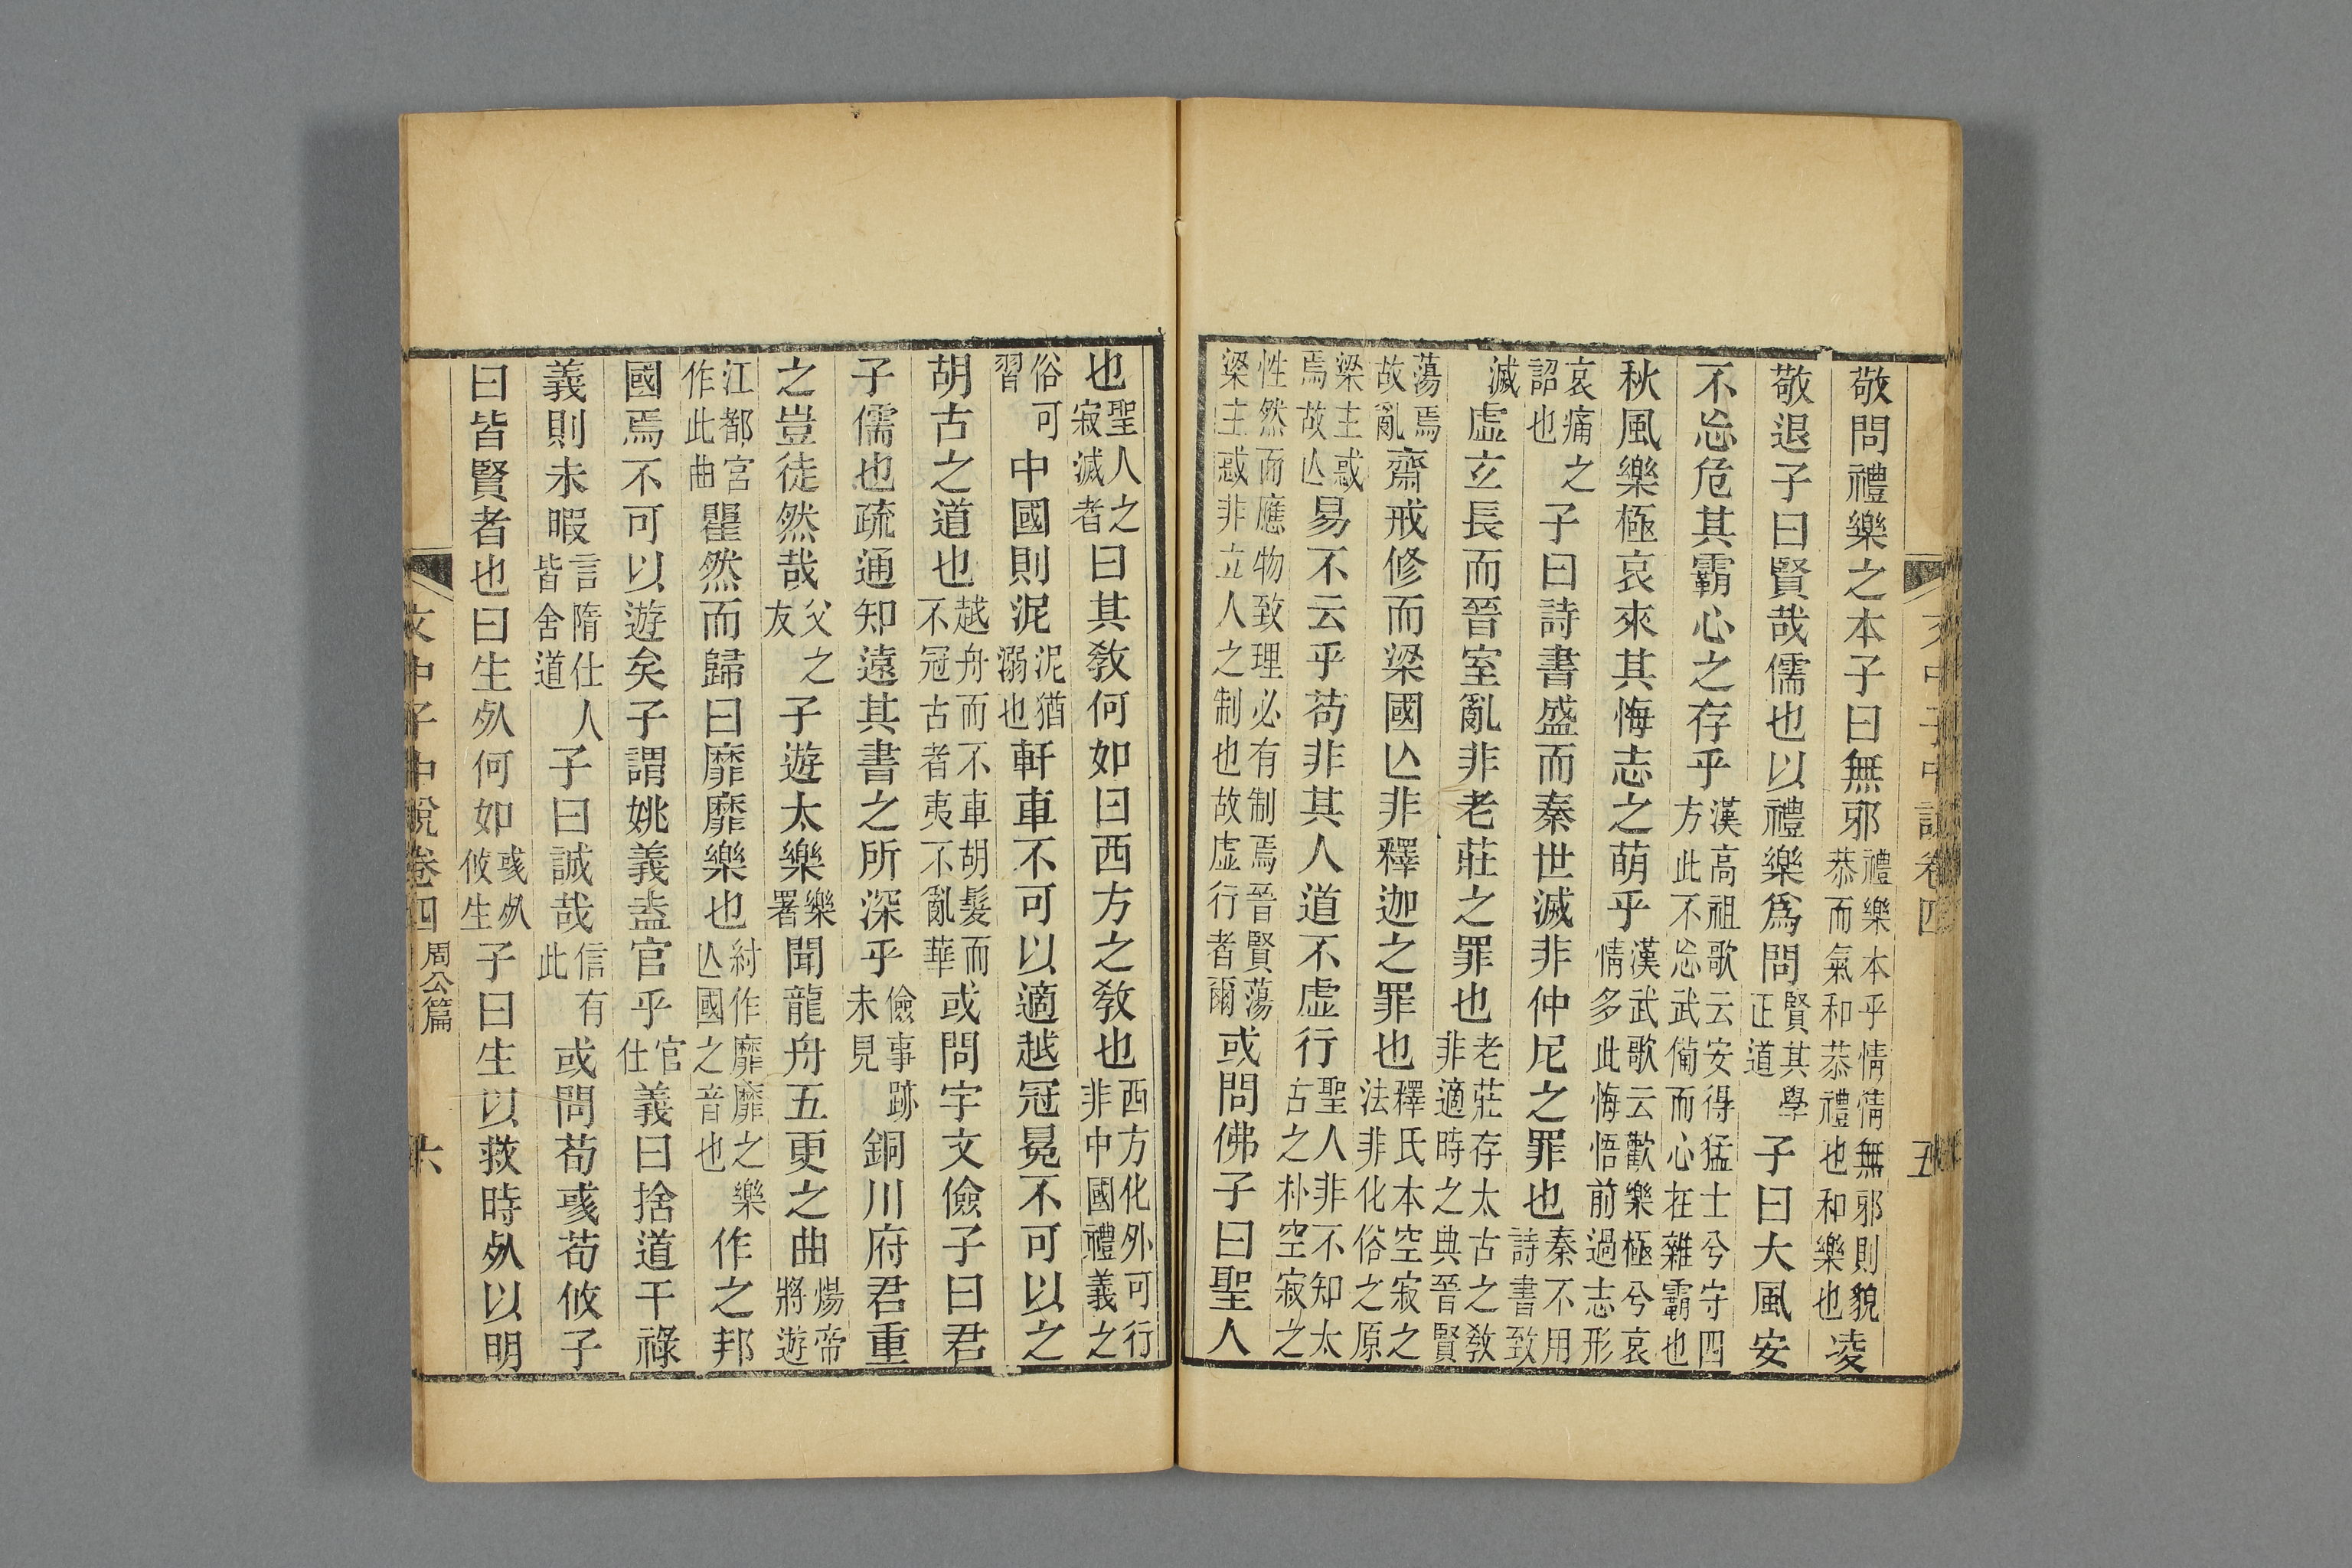 文中子中說卷四 五
敬問禮樂之本子曰無邪禮樂本乎情情無邪則貌恭而氣和恭禮也和樂也凌
敬退子曰賢哉儒也以禮樂爲問賢其學正道子曰大風安
不忘危其霸心之存乎漢高祖歌云安得猛士兮守四方此不忘武備而心在雜霸也
秋風樂極哀來其悔志之萌乎漢武歌云歡樂極兮哀情多此悔悟前過志形
哀痛之詔也子曰詩書盛而秦世滅非仲尼之罪也秦不用詩書致
滅虛玄長而晉室亂非老莊之罪也老莊存太古之敎非適時之典晉賢
蕩焉故亂齋戒修而梁國亾非釋迦之罪也釋氏本空寂之法非化俗之原
梁主惑焉故亾易不云乎苟非其人道不虛行聖人非不知太古之朴空寂之
性然而應物致理必有制焉晉賢蕩梁主惑非立人之制也故虛行者爾或問佛子曰聖人
也聖人之寂滅者曰其敎何如曰西方之敎也西方化外可行非中國禮義之
俗可習中國則泥泥猶溺也軒車不可以適越冠冕不可以之
胡古之道也越舟而不車胡髮而不冠古者夷不亂華或問宇文儉子曰君
子儒也疏通知遠其書之所深乎儉事跡未見銅川府君重
之豈徒然哉父之友子遊太樂樂署聞龍舟五更之曲煬帝將遊
江都宮作此曲瞿然而歸曰靡靡樂也紂作靡靡之樂亾國之音也作之邦
國焉不可以遊矣子謂姚義盍官乎官仕義曰捨道干祿
義則未暇言隋仕人皆舍道子曰誠哉信有此或問荀彧荀攸子
曰皆賢者也曰生死何如彧死攸生子曰生以救時死以明
文中子中說卷四 周公篇 六